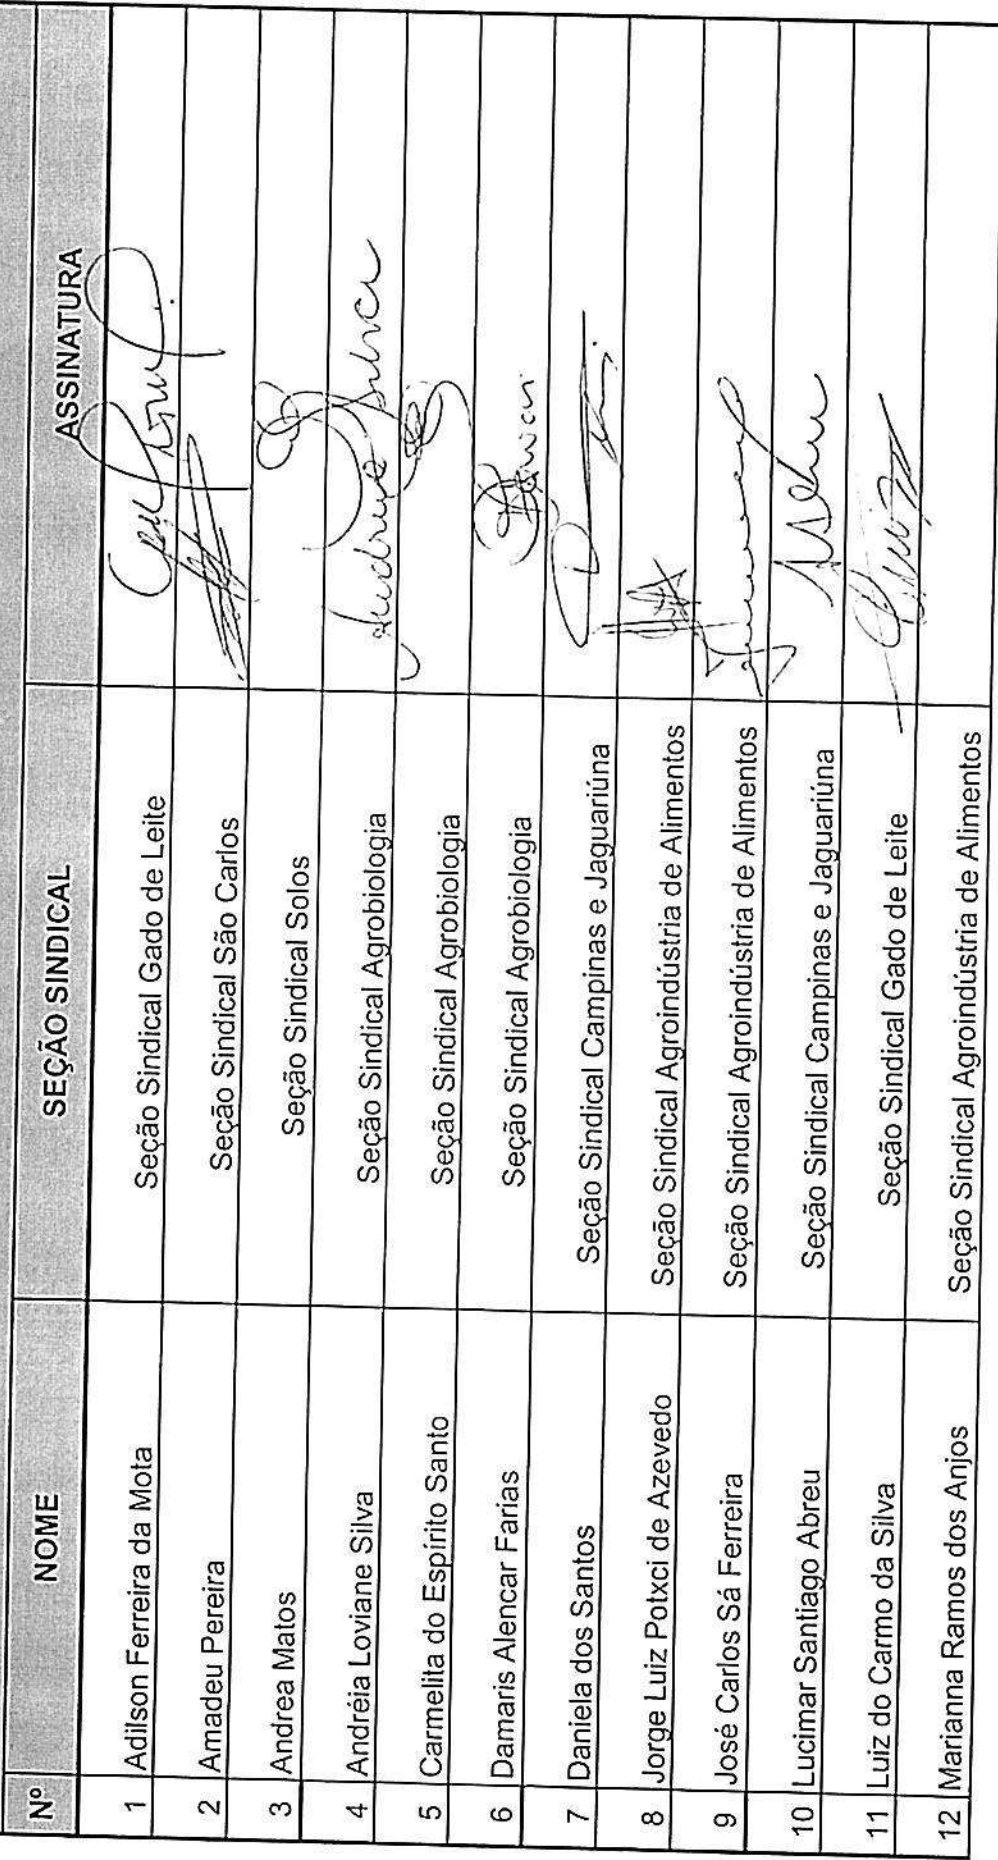 Nº NOME SEÇÃO SINDICAL ASSINATURA
1 Adilson Ferreira da Mota Seção Sindical Gado de Leite
2 Amadeu Pereira Seção Sindical São Carlos
3 Andrea Matos Seção Sindical Solos
4 Andréia Loviane Silva Seção Sindical Agrobiologia
5 Carmelita do Espírito Santo Seção Sindical Agrobiologia
6 Damaris Alencar Farias Seção Sindical Agrobiologia
7 Daniela dos Santos Seção Sindical Campinas e Jaguariúna
8 Jorge Luiz Potxci de Azevedo Seção Sindical Agroindústria de Alimentos
9 José Carlos Sá Ferreira Seção Sindical Agroindústria de Alimentos
10 Lucimar Santiago Abreu Seção Sindical Campinas e Jaguariúna
11 Luiz do Carmo da Silva Seção Sindical Gado de Leite
12 Marianna Ramos dos Anjos Seção Sindical Agroindústria de Alimentos